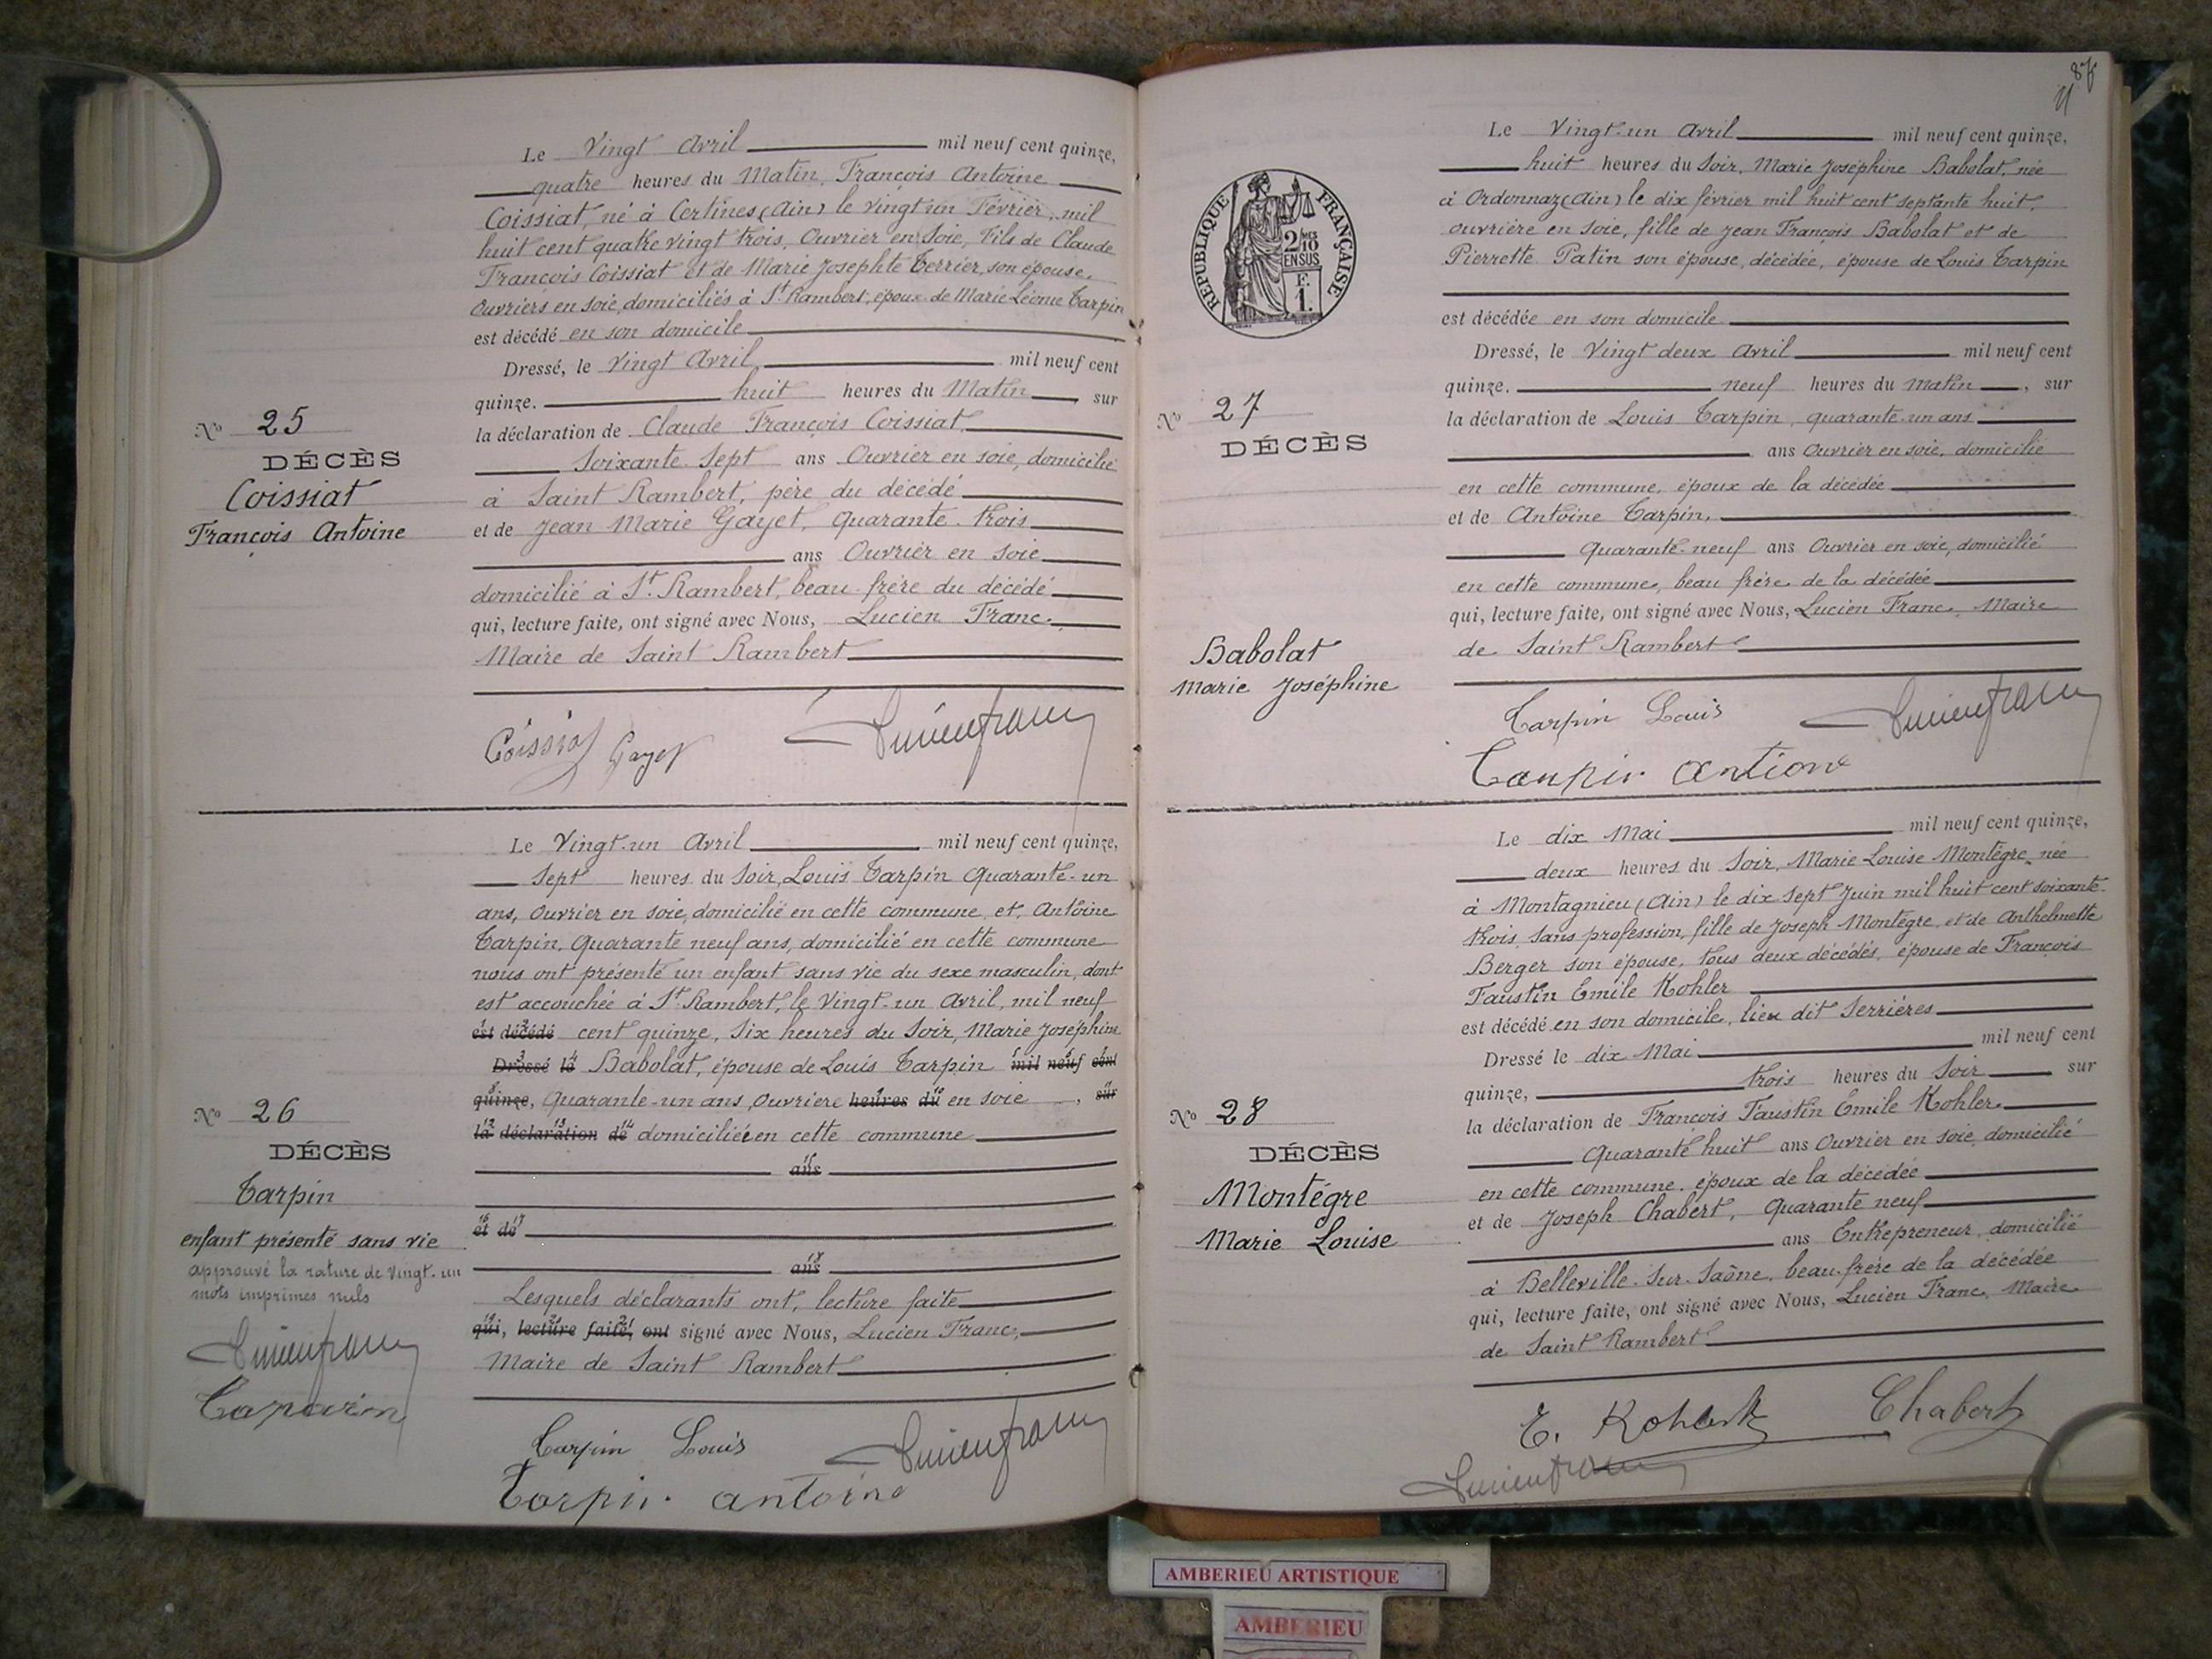 Le Vingt Avril mil neuf cent quinze,
quatre heures du Matin, François Antoine
Coissiat, né à Certines (Ain) le vingt un Février, mil
huit cent quatre vingt trois, Ouvrier en Soie, Fils de Claude
François Coissiat et de Marie Josephte Terrier, son épouse,
Ouvriers en soie, domiciliés à St Rambert, époux de Marie Léonie Tarpin
est décédé en son domicile
Dressé, le Vingt Avril, mil neuf cent
quinze. huit heures du Matin, sur
la déclaration de Claude François Coissiat,
Soixante Sept ans Ouvrier en soie, domicilié
à Saint Rambert, père du décédé
et de Jean Marie Gayet, Quarante-trois
ans Ouvrier en soie
domicilié à St. Rambert, beau-frère du décédé
qui, lecture faite, ont signé avec Nous, Lucien Franc,
Maire de Saint Rambert
No 25
DÉCÈS
Coissiat
François Antoine
Coissiat Gayet Lucien franc
Le Vingt-un Avril mil neuf cent quinze,
Sept heures du Soir, Louis Tarpin Quarante-un
ans, Ouvrier en soie, domicilié en cette commune, et, Antoine
Tarpin, Quarante neuf ans, domicilié en cette commune
nous ont présenté un enfant sans vie du sexe masculin, dont
est accouchée à St Rambert, le Vingt-un Avril, mil neuf
est décédé cent quinze, Six heures du Soir, Marie Joséphine
Dressé le Babolat, épouse de Louis Tarpin mil neuf cent
quinze, Quarante-un ans, Ouvrière heures du en soie, sur
la déclaration de domiciliée en cette commune
ans
et de
ans
Lesquels déclarants ont, lecture faite
qui, lecture faite, ont signé avec Nous, Lucien Franc,
Maire de Saint Rambert
No 26
DÉCÈS
Tarpin
enfant présenté sans vie
approuvé la rature de Vingt-un
mots imprimés nuls
Lucien franc
Tarpin Louis Lucien franc
Tarpin antoine
87
Le Vingt-un Avril mil neuf cent quinze,
huit heures du Soir, Marie Joséphine Babolat, née
à Ordonnaz (Ain) le dix février mil huit cent septante huit,
ouvrière en soie, fille de Jean François Babolat et de
Pierrette Patin son épouse, décédée, épouse de Louis Tarpin
est décédée en son domicile
Dressé, le Vingt deux Avril mil neuf cent
quinze. neuf heures du Matin, sur
la déclaration de Louis Tarpin, quarante-un ans
ans Ouvrier en soie, domicilié
en cette commune, époux de la décédée
et de Antoine Tarpin,
Quarante-neuf ans Ouvrier en soie, domicilié
en cette commune, beau frère de la décédée
qui, lecture faite, ont signé avec Nous, Lucien Franc, Maire
de Saint Rambert
REPUBLIQUE FRANÇAISE
2 MES
10
EN SUS
F.
1.
No 27
DÉCÈS
Babolat
Marie Joséphine
Tarpin Louis Lucien franc
Le dix Mai mil neuf cent quinze,
deux heures du Soir, Marie Louise Montègre, née
à Montagnieu (Ain) le dix Sept Juin mil huit cent soixante-
trois, Sans profession, fille de Joseph Montègre, et de Anthelmette
Berger son épouse, tous deux décédés, épouse de François
Faustin Emile Kohler
est décédé en son domicile, lieu dit Serrières
Dressé le dix Mai mil neuf cent
quinze, trois heures du Soir sur
la déclaration de François Faustin Emile Kohler
Quarante huit ans Ouvrier en soie, domicilié
en cette commune, époux de la décédée
et de Joseph Chabert, Quarante neuf
ans Entrepreneur, domicilié
à Belleville-Sur-Saône, beau-frère de la décédée
qui, lecture faite, ont signé avec Nous, Lucien Franc, Maire
de Saint Rambert
No 28
DÉCÈS
Montègre
Marie Louise
Chabert
Lucien franc
AMBERIEU ARTISTIQUE
AMBERIEU